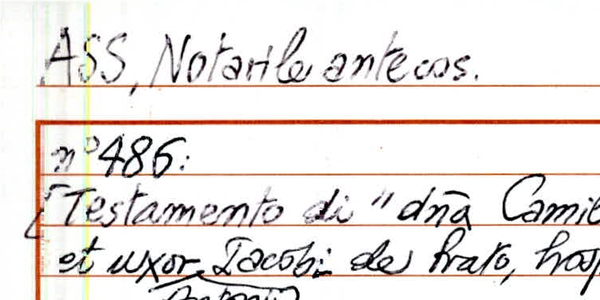 ASS, Notarile antecos.
n° 486:
[Testamento di "dn̄a Camil
et uxor Iacobi de Prato, hosp
Antonio